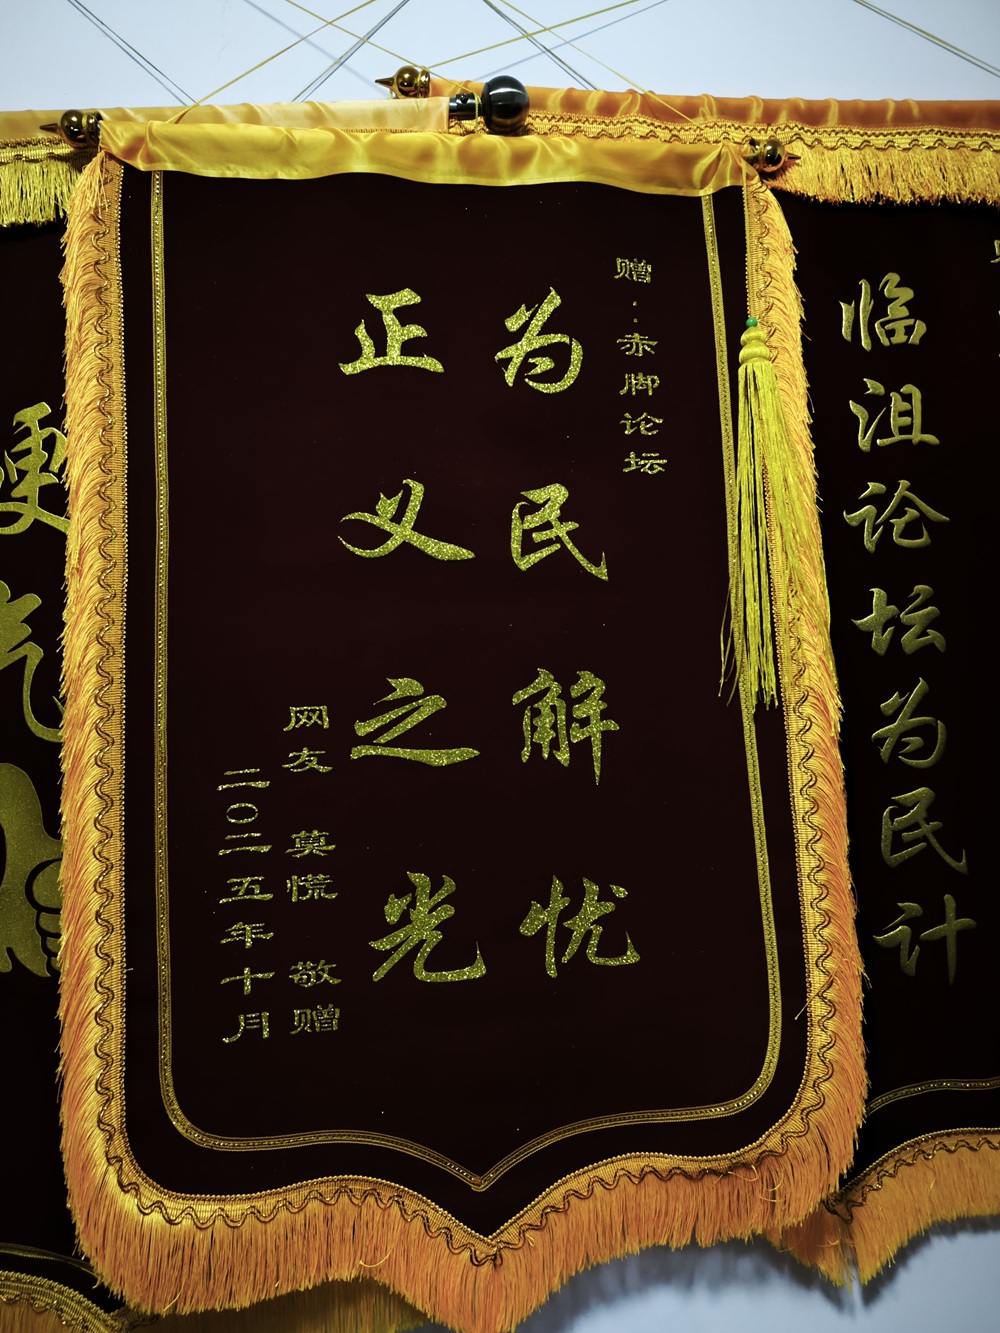 赠：赤脚论坛
为民解忧
正义之光
网友 莫慌 敬赠
二〇二五年十月
临沮论坛为民计